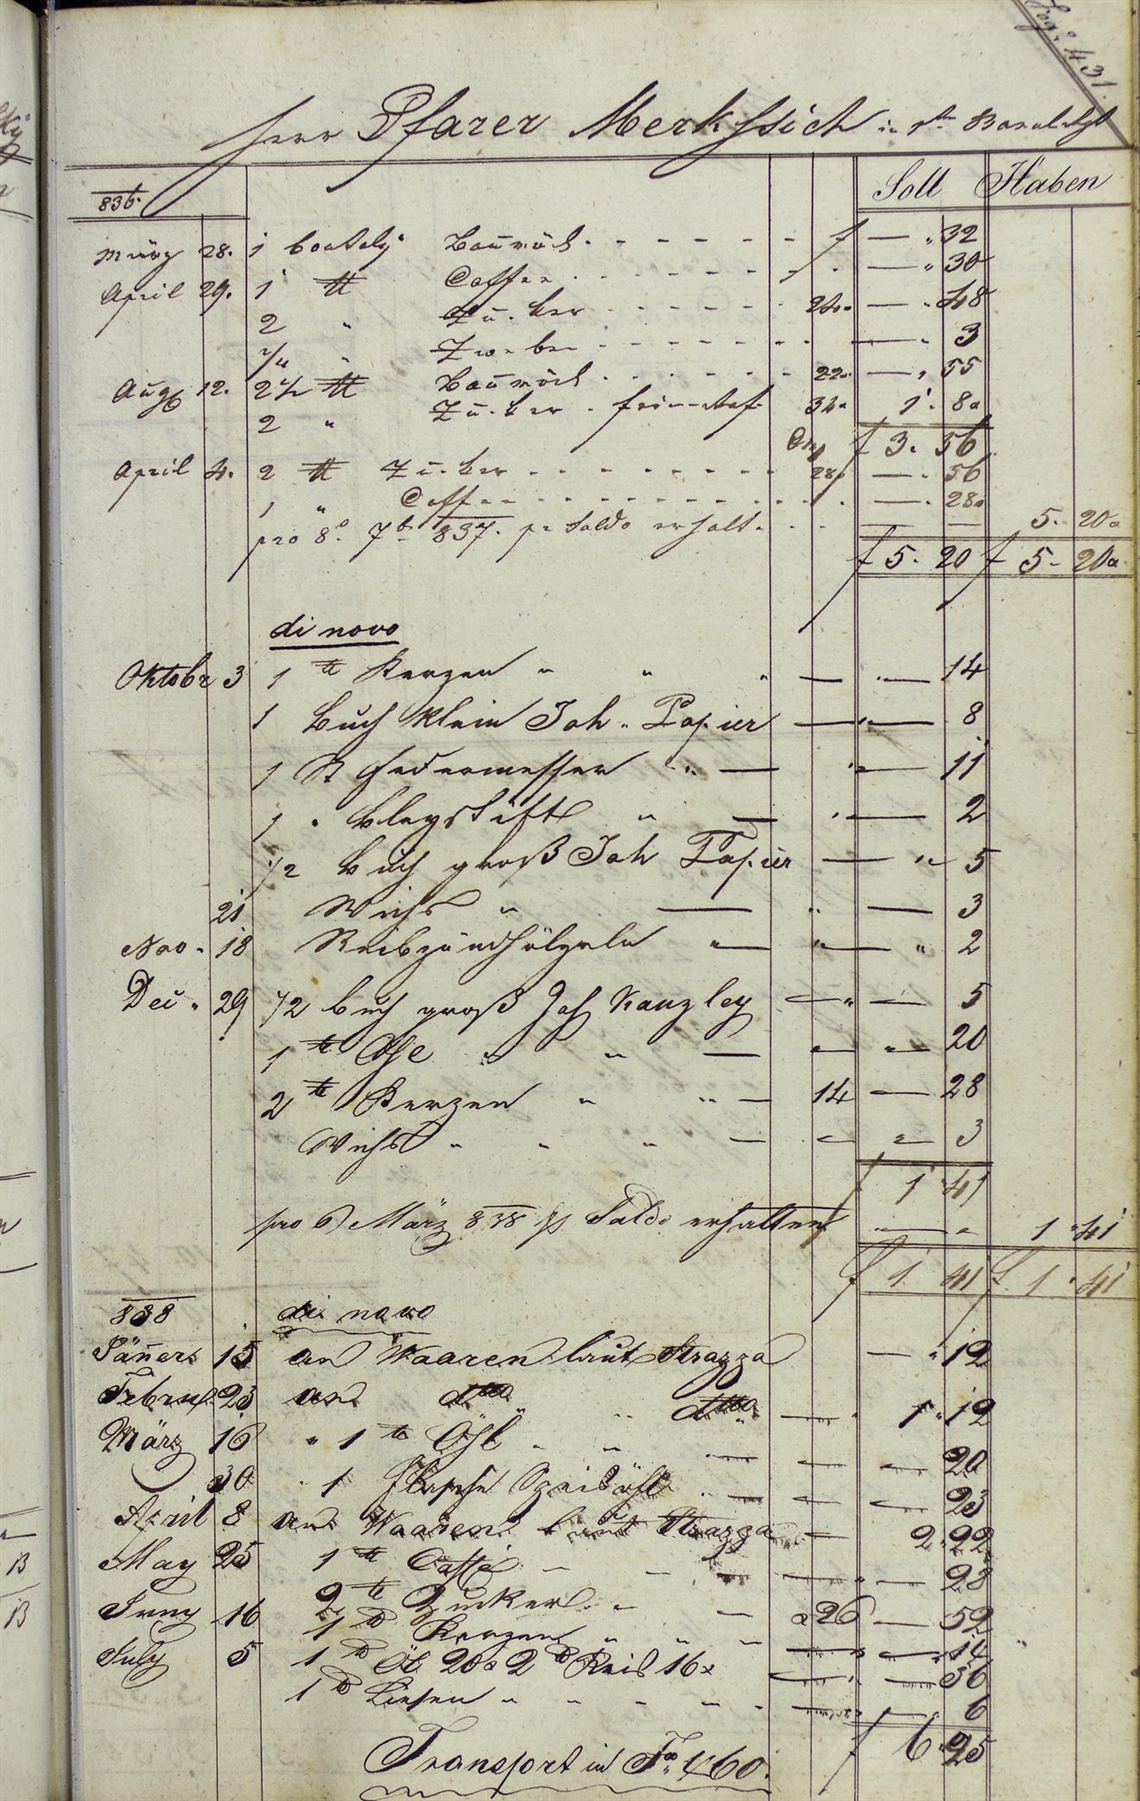 Pag: 431.
Herr Pfarer Merkhsich in
Soll Haben
836.
März 28. 1 Baumöl f — 32
April 29. 1 ℔ Caffee — 30
2 " Zucker 24. — 48
Zweben — 3
Aug 12. 2 1/2 ℔ Baumöl 22. — 55
2 " Zucker 34. 1. 8
f 3. 56
April 4. 2 ℔ Zucker 28 — 56
1 " Caffee — 28
pro 8. 7b 837. pr Saldo erhalt. — 5. 20
f 5. 20 f 5. 20
di novo
Oktobr 3 1 ℔ Kerzen " " " — 14
1 Buch klein Joh. Papier — 8
1 St Federmesser — 11
1 " Bleystift " — 2
1/2 Buch groß Joh Papier — 5
21 Wichs " — 3
Nov. 18 Reibzündhölzeln — 2
Dec. 29 1/2 Buch groß Joh Kanzley — 5
1 ℔ Öhl — 20
2 ℔ Kerzen " 14 — 28
Wichs " " " — 3
f 1 41
pro 6 März 838 pr Saldo erhalten — 1 41
f 1. 41 f 1. 41
838 di novo
Jäners 15 an Waaren laut Strazza — 12
Febru 23 an dtto dtto 1. 12
März 16 " 1 ℔ Öhl — 20
30 1 Flasche Speisöhl — 23
April 8 an Waaren laut Strazza 2. 22
May 25 1 ℔ Caffé — 28
2 ℔ Zucker a 26 — 52
Juny 16 1 ℔ Kerzen " " — 14
July 5 1 ℔ Öl 20x 2 ℔ Reis 16x — 36
1 ℔ Linsen " " — 6
f 6. 25
Transport in Fo 460.